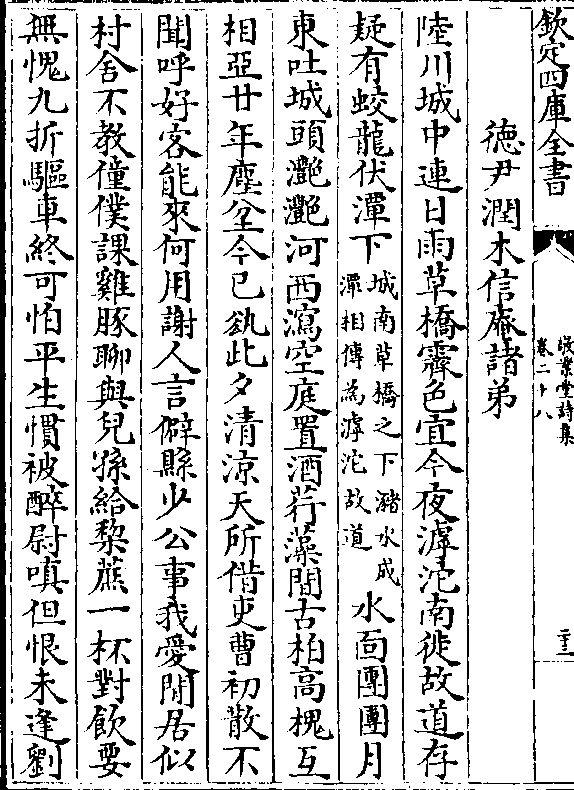 欽定四庫全書
敬業堂詩集
卷二十八
二十三
德尹潤木信庵諸弟
陸川城中連日雨草橋霽色宜今夜滹沱南徙故道存
疑有蛟龍伏潭下城南草橋之下瀦水成潭相傳為滹沱故道水面團團月
東吐城頭灧灧河西瀉空庭置酒荇藻間古柏高槐互
相亞廿年塵坌今已紈此夕清涼天所借吏曹初散不
聞呼好客能來何用謝人言僻縣少公事我愛閒居似
村舍不教僮僕課雞豚聊與兒孫給棃蔗一杯對飲要
無愧九折驅車終可怕平生慣被醉尉嗔但恨未逢劉